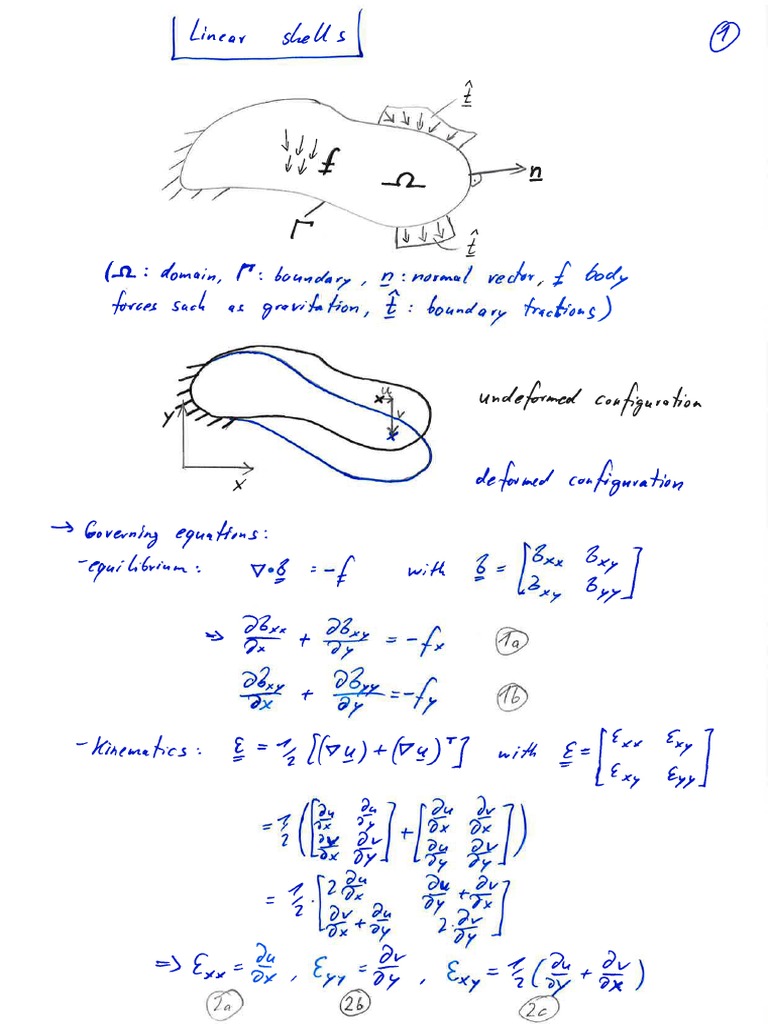 Linear shells
1
t̂
f
Ω
n
Γ
t̂
(Ω: domain, Γ: boundary, n: normal vector, f body
forces such as gravitation, t̂: boundary tractions)
u
v
x
undeformed configuration
y
x
deformed configuration
→ Governing equations:
- equilibrium: ∇•σ = -f with σ = [σxx σxy; σxy σyy]
⇒ ∂σxx/∂x + ∂σxy/∂y = -fx 1a
∂σxy/∂x + ∂σyy/∂y = -fy 1b
- Kinematics: ε = 1/2 [(∇u) + (∇u)ᵀ] with ε = [εxx εxy; εxy εyy]
= 1/2 ([∂u/∂x ∂u/∂y; ∂v/∂x ∂v/∂y] + [∂u/∂x ∂v/∂x; ∂u/∂y ∂v/∂y])
= 1/2 · [2 ∂u/∂x ∂u/∂y + ∂v/∂x; ∂v/∂x + ∂u/∂y 2·∂v/∂y]
⇒ εxx = ∂u/∂x , εyy = ∂v/∂y , εxy = 1/2 (∂u/∂y + ∂v/∂x)
2a 2b 2c